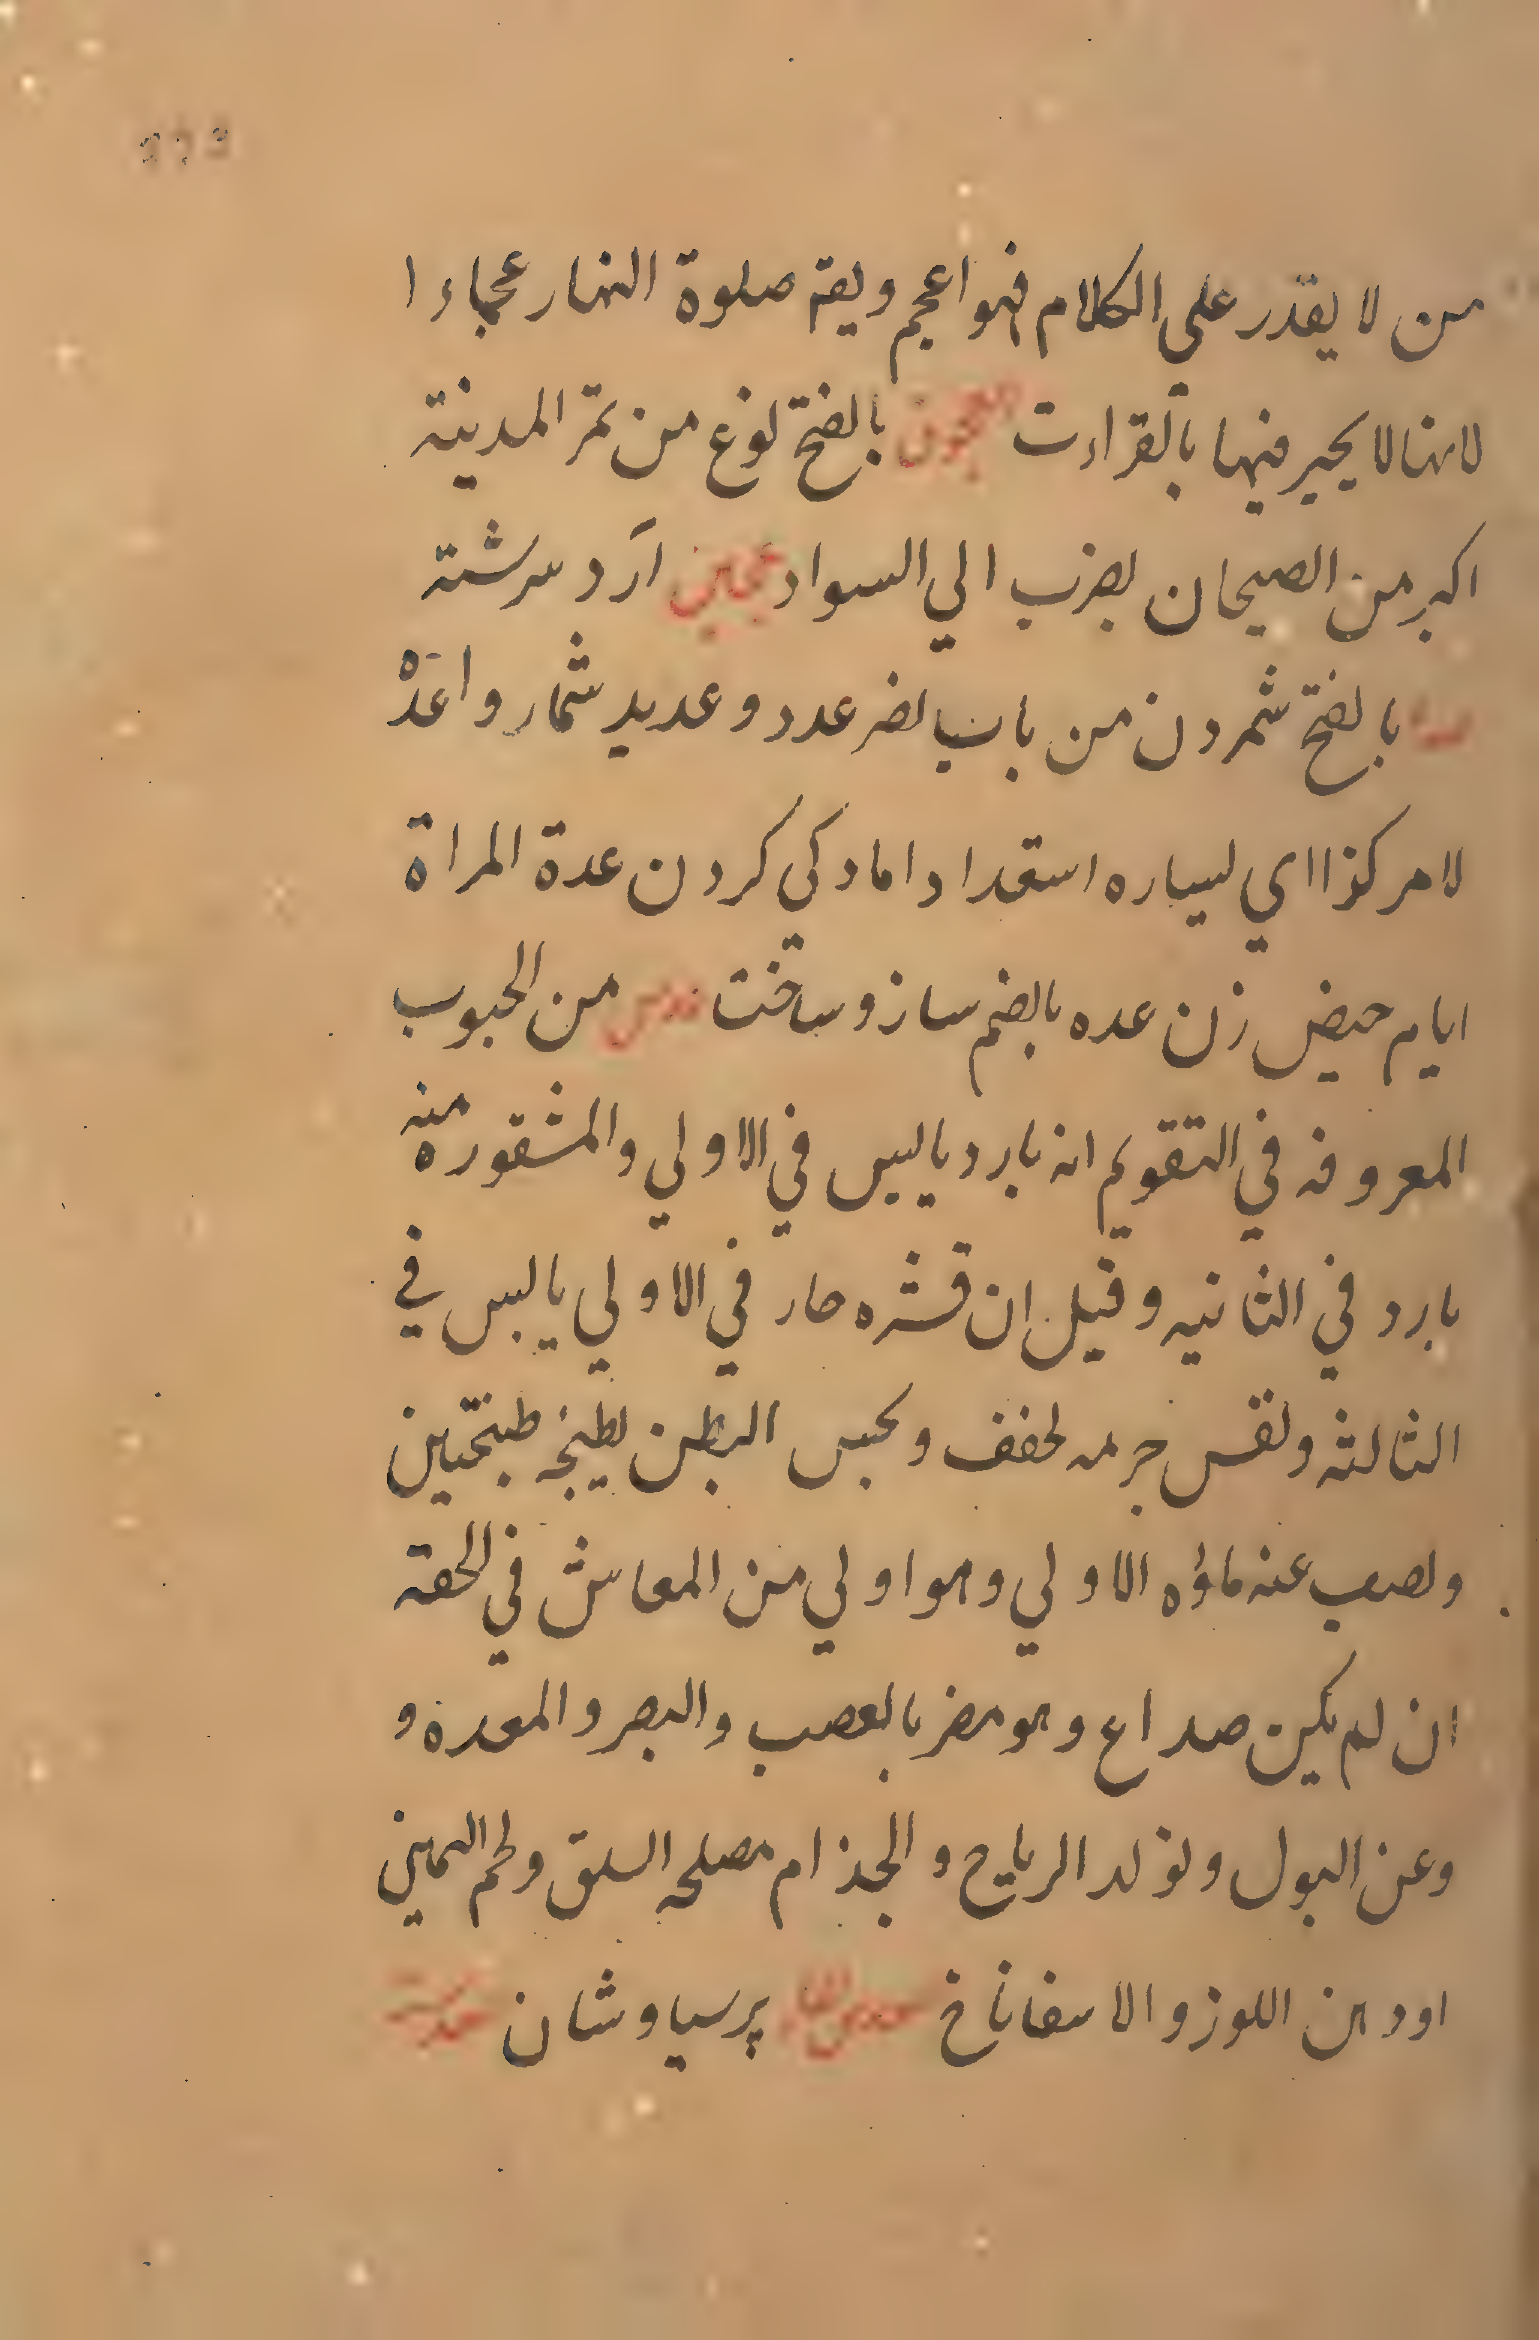 من لا يقدر على الكلام فهو اعجم ويقه صلوة النهار عجماء ا
لانها لا يجهر فيها بالقراءت العجوة بالفتح نوع من تمر المدينة
اكبر من الصيحان يضرب الي السواد عجين ارد سرشته
عدا بالفتح شمردن من باب نضر عدد و عديد شمار و اعدّه
لامر كذا اي لسياره استعداد امادكي كردن عدة المراة
ايام حيض زن عده بالضم ساز و ساخت عدس من الحبوب
المعروفه في التقويم انه بارد يابس في الاولي والمشقوره منه
بارد في الثانيه وقيل ان قشره حار في الاولي يابس في
الثالثه ونفس جرمه يخفف و يحبس البطن بطبخه طبختين
ويصب عنه ماؤه الاولي وهو اولي من المعاش في الحقه
ان لم يكن صداع وهو مضر بالعصب والبصر والمعده و
وعن البول ويولد الرياح و الجذام مصلحه السلق ولحم السمين
اودهن اللوز والاسفاناخ عدس الماء پرسياوشان